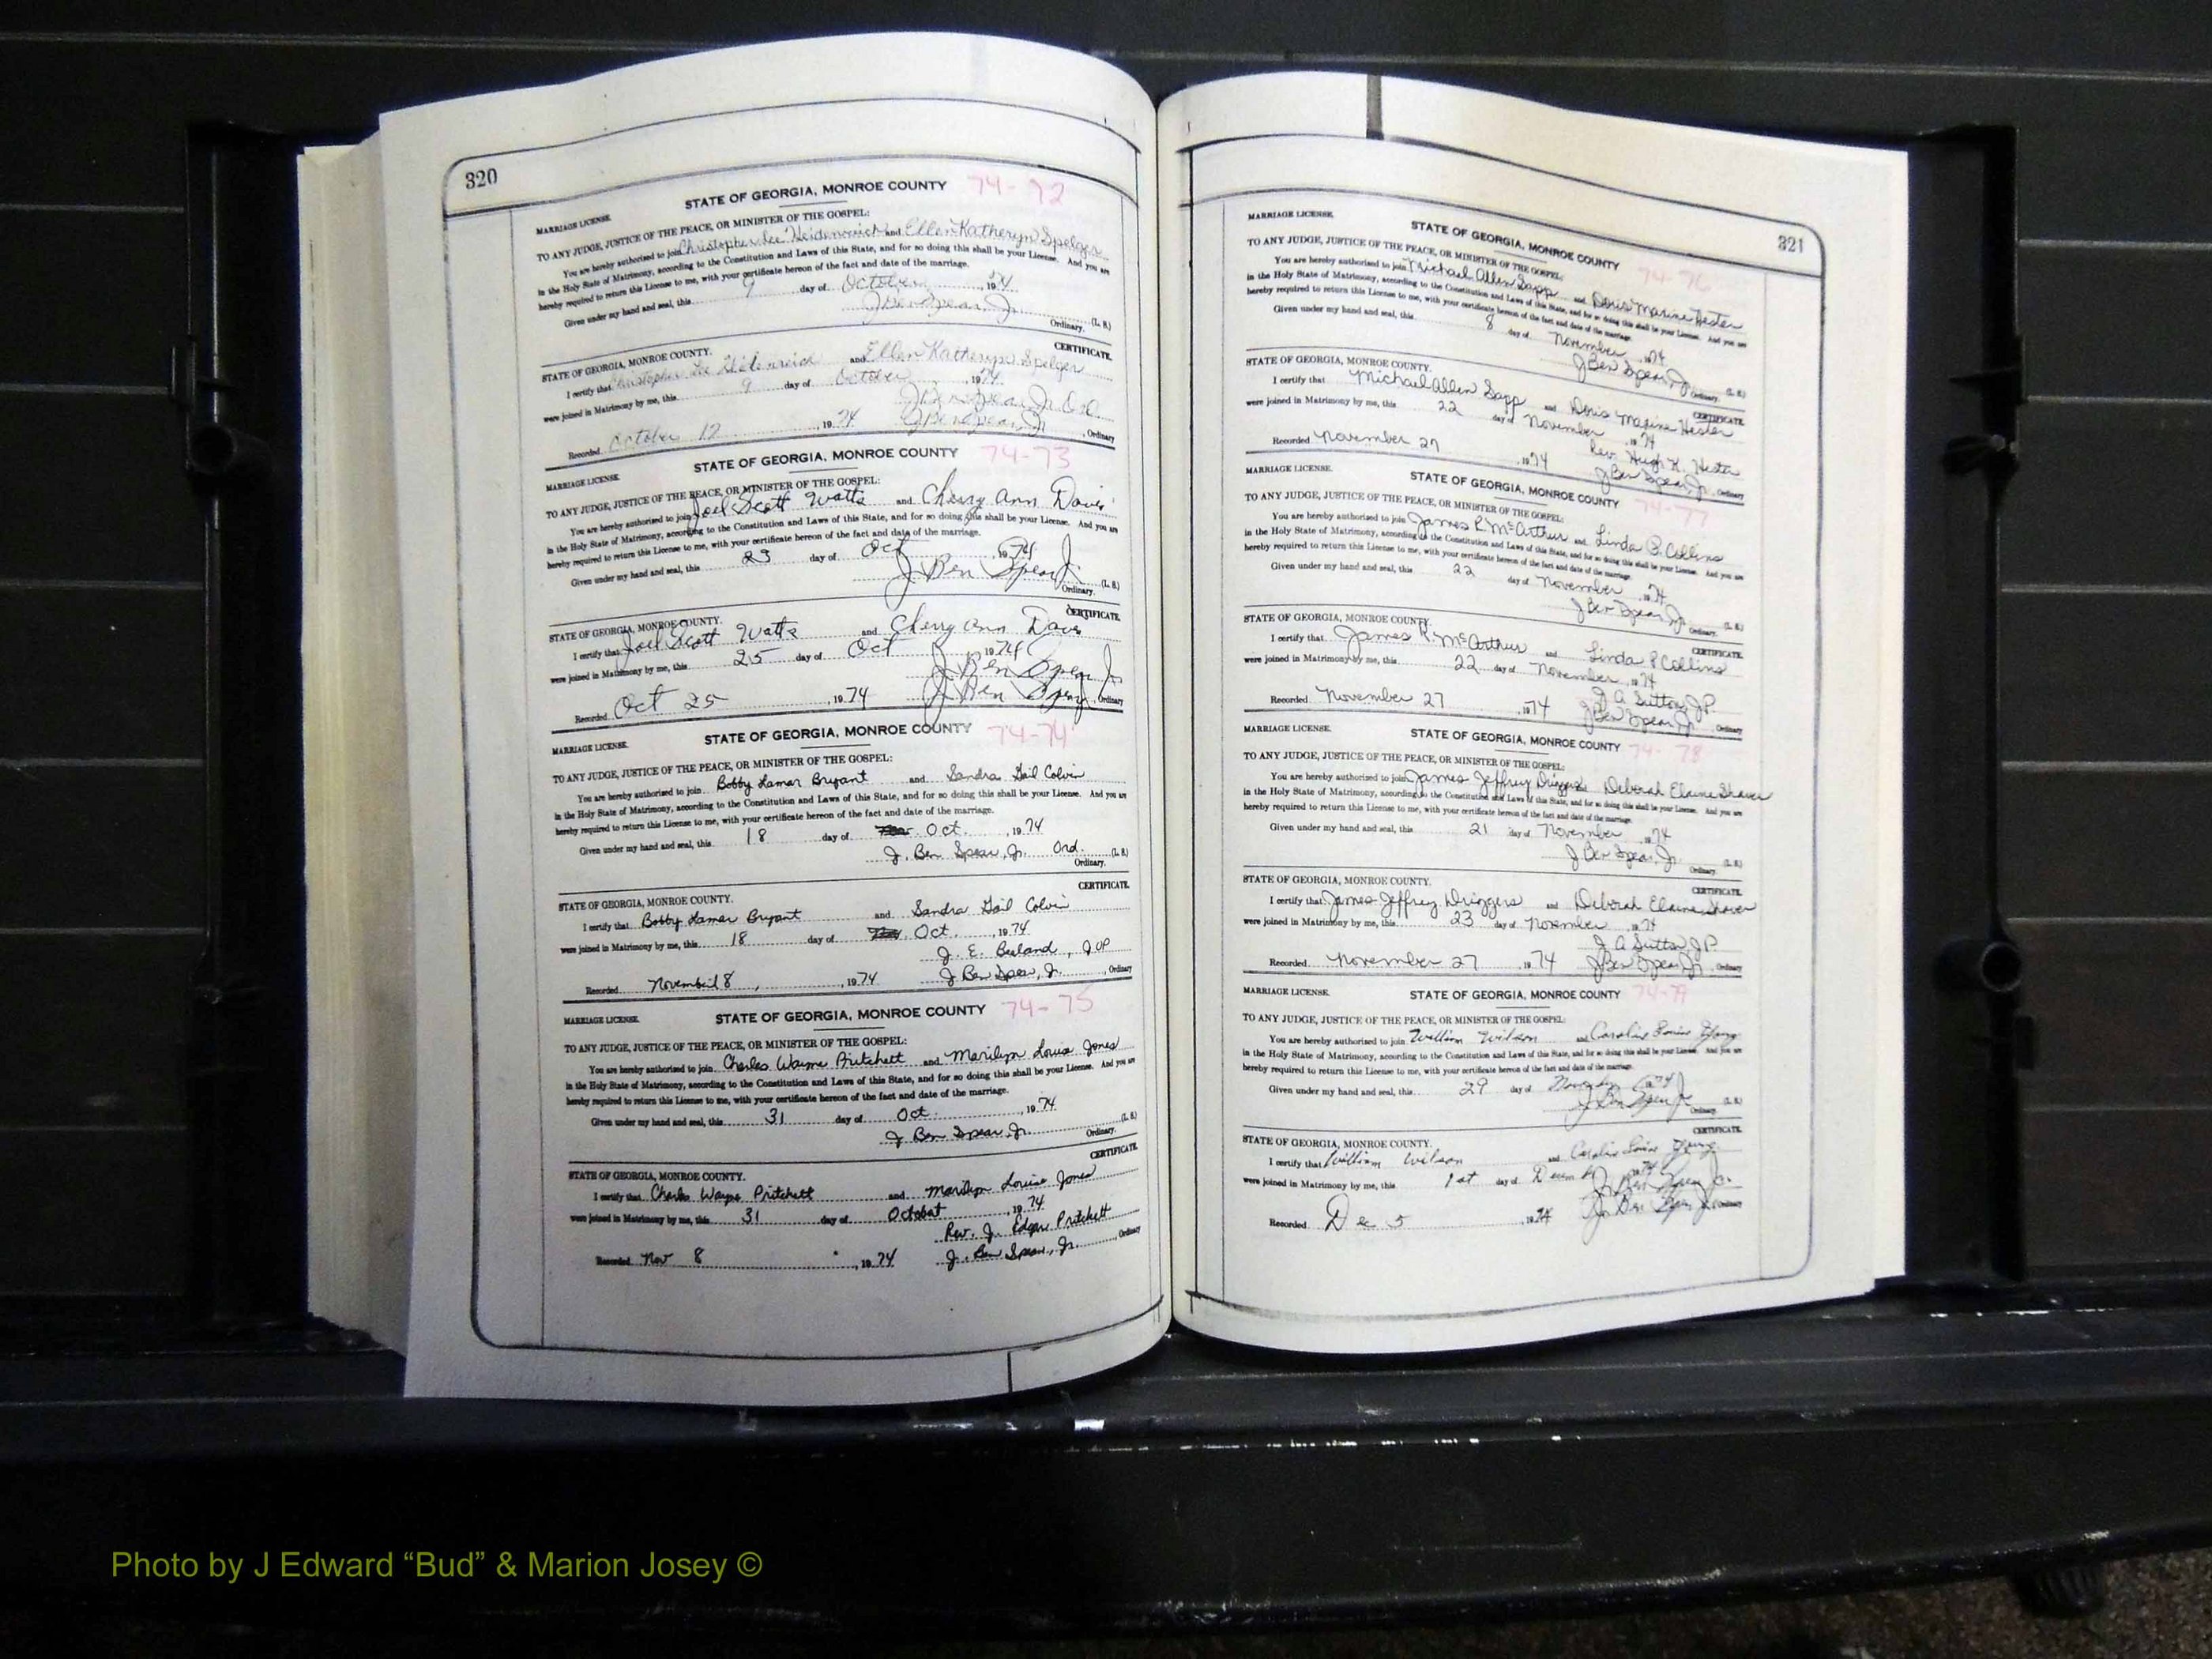 320
STATE OF GEORGIA, MONROE COUNTY 74-72
MARRIAGE LICENSE.
TO ANY JUDGE, JUSTICE OF THE PEACE, OR MINISTER OF THE GOSPEL:
You are hereby authorized to join Christopher Lee Heidenreich and Ellen Katheryn Spelger
in the Holy State of Matrimony, according to the Constitution and Laws of this State, and for so doing this shall be your License. And you are
hereby required to return this License to me, with your certificate hereon of the fact and date of the marriage.
Given under my hand and seal, this 9 day of October, 1974
J Ben Spear, Jr. (L. S.)
Ordinary.
CERTIFICATE.
STATE OF GEORGIA, MONROE COUNTY.
I certify that Christopher Lee Heidenreich and Ellen Katheryn Spelger
were joined in Matrimony by me, this 9 day of October, 1974
J Ben Spear, Jr. Ord.
Recorded October 12, 1974 J Ben Spear, Jr., Ordinary
STATE OF GEORGIA, MONROE COUNTY 74-73
MARRIAGE LICENSE.
TO ANY JUDGE, JUSTICE OF THE PEACE, OR MINISTER OF THE GOSPEL:
You are hereby authorized to join Joel Scott Watts and Cherry Ann Davis
in the Holy State of Matrimony, according to the Constitution and Laws of this State, and for so doing this shall be your License. And you are
hereby required to return this License to me, with your certificate hereon of the fact and date of the marriage.
Given under my hand and seal, this 23 day of Oct, 1974
J. Ben Spear Jr (L. S.)
Ordinary.
CERTIFICATE.
STATE OF GEORGIA, MONROE COUNTY.
I certify that Joel Scott Watts and Cherry Ann Davis
were joined in Matrimony by me, this 25 day of Oct, 1974
J. Ben Spear Jr
Recorded Oct 25, 1974 J. Ben Spear Jr, Ordinary
STATE OF GEORGIA, MONROE COUNTY 74-74
MARRIAGE LICENSE.
TO ANY JUDGE, JUSTICE OF THE PEACE, OR MINISTER OF THE GOSPEL:
You are hereby authorized to join Bobby Lamar Bryant and Sandra Gail Colvin
in the Holy State of Matrimony, according to the Constitution and Laws of this State, and for so doing this shall be your License. And you are
hereby required to return this License to me, with your certificate hereon of the fact and date of the marriage.
Given under my hand and seal, this 18 day of Oct., 1974
J. Ben Spear, Jr. Ord. (L. S.)
Ordinary.
CERTIFICATE.
STATE OF GEORGIA, MONROE COUNTY.
I certify that Bobby Lamar Bryant and Sandra Gail Colvin
were joined in Matrimony by me, this 18 day of Oct., 1974
J. E.
Recorded November 8, 1974 J. Ben Spear, Jr., Ordinary
STATE OF GEORGIA, MONROE COUNTY 74-75
MARRIAGE LICENSE.
TO ANY JUDGE, JUSTICE OF THE PEACE, OR MINISTER OF THE GOSPEL:
You are hereby authorized to join Charles Wayne Pritchett and Marilyn Louise Jones
in the Holy State of Matrimony, according to the Constitution and Laws of this State, and for so doing this shall be your License. And you are
hereby required to return this License to me, with your certificate hereon of the fact and date of the marriage.
Given under my hand and seal, this 31 day of Oct., 1974
J. Ben Spear, Jr. (L. S.)
Ordinary.
CERTIFICATE.
STATE OF GEORGIA, MONROE COUNTY.
I certify that Charles Wayne Pritchett and Marilyn Louise Jones
were joined in Matrimony by me, this 31 day of October, 1974
Rev. J. Edgar Pritchett
Recorded Nov 8, 1974 J. Ben Spear, Jr., Ordinary
321
MARRIAGE LICENSE.
STATE OF GEORGIA, MONROE COUNTY 74-76
TO ANY JUDGE, JUSTICE OF THE PEACE, OR MINISTER OF THE GOSPEL:
You are hereby authorized to join Michael Allen Sapp and Doris Maxine Hester
in the Holy State of Matrimony, according to the Constitution and Laws of this State, and for so doing this shall be your License. And you are
hereby required to return this License to me, with your certificate hereon of the fact and date of the marriage.
Given under my hand and seal, this 8 day of November, 1974
J Ben Spear, Jr. (L. S.)
Ordinary.
STATE OF GEORGIA, MONROE COUNTY.
CERTIFICATE.
I certify that Michael Allen Sapp and Doris Maxine Hester
were joined in Matrimony by me, this 22 day of November, 1974
Rev. Hugh K. Hester
Recorded November 27, 1974 J Ben Spear, Jr., Ordinary
MARRIAGE LICENSE.
STATE OF GEORGIA, MONROE COUNTY 74-77
TO ANY JUDGE, JUSTICE OF THE PEACE, OR MINISTER OF THE GOSPEL:
You are hereby authorized to join James R. McArthur and Linda P. Collins
in the Holy State of Matrimony, according to the Constitution and Laws of this State, and for so doing this shall be your License. And you are
hereby required to return this License to me, with your certificate hereon of the fact and date of the marriage.
Given under my hand and seal, this 22 day of November, 1974
J Ben Spear, Jr. (L. S.)
Ordinary.
STATE OF GEORGIA, MONROE COUNTY.
CERTIFICATE.
I certify that James R. McArthur and Linda P Collins
were joined in Matrimony by me, this 22 day of November, 1974
J A Sutton, J.P.
Recorded November 27, 1974 J Ben Spear, Jr., Ordinary
MARRIAGE LICENSE.
STATE OF GEORGIA, MONROE COUNTY 74-78
TO ANY JUDGE, JUSTICE OF THE PEACE, OR MINISTER OF THE GOSPEL:
You are hereby authorized to join James Jeffrey Driggers Deborah Elaine Shaver
in the Holy State of Matrimony, according to the Constitution and Laws of this State, and for so doing this shall be your License. And you are
hereby required to return this License to me, with your certificate hereon of the fact and date of the marriage.
Given under my hand and seal, this 21 day of November, 1974
J Ben Spear, Jr. (L. S.)
Ordinary.
STATE OF GEORGIA, MONROE COUNTY.
CERTIFICATE.
I certify that James Jeffrey Driggers and Deborah Elaine Shaver
were joined in Matrimony by me, this 23 day of November, 1974
J A Sutton J.P.
Recorded November 27, 1974 J Ben Spear, Jr., Ordinary
MARRIAGE LICENSE.
STATE OF GEORGIA, MONROE COUNTY 74-79
TO ANY JUDGE, JUSTICE OF THE PEACE, OR MINISTER OF THE GOSPEL:
You are hereby authorized to join William Wilson and
in the Holy State of Matrimony, according to the Constitution and Laws of this State, and for so doing this shall be your License. And you are
hereby required to return this License to me, with your certificate hereon of the fact and date of the marriage.
Given under my hand and seal, this 29 day of November, 1974
J Ben Spear Jr (L. S.)
Ordinary.
CERTIFICATE.
STATE OF GEORGIA, MONROE COUNTY.
I certify that William Wilson and
were joined in Matrimony by me, this 1st day of 1974
J. Ben Spear Jr.
Recorded Dec 5, 1974 J. Ben Spear Jr., Ordinary
Photo by J Edward “Bud” & Marion Josey ©